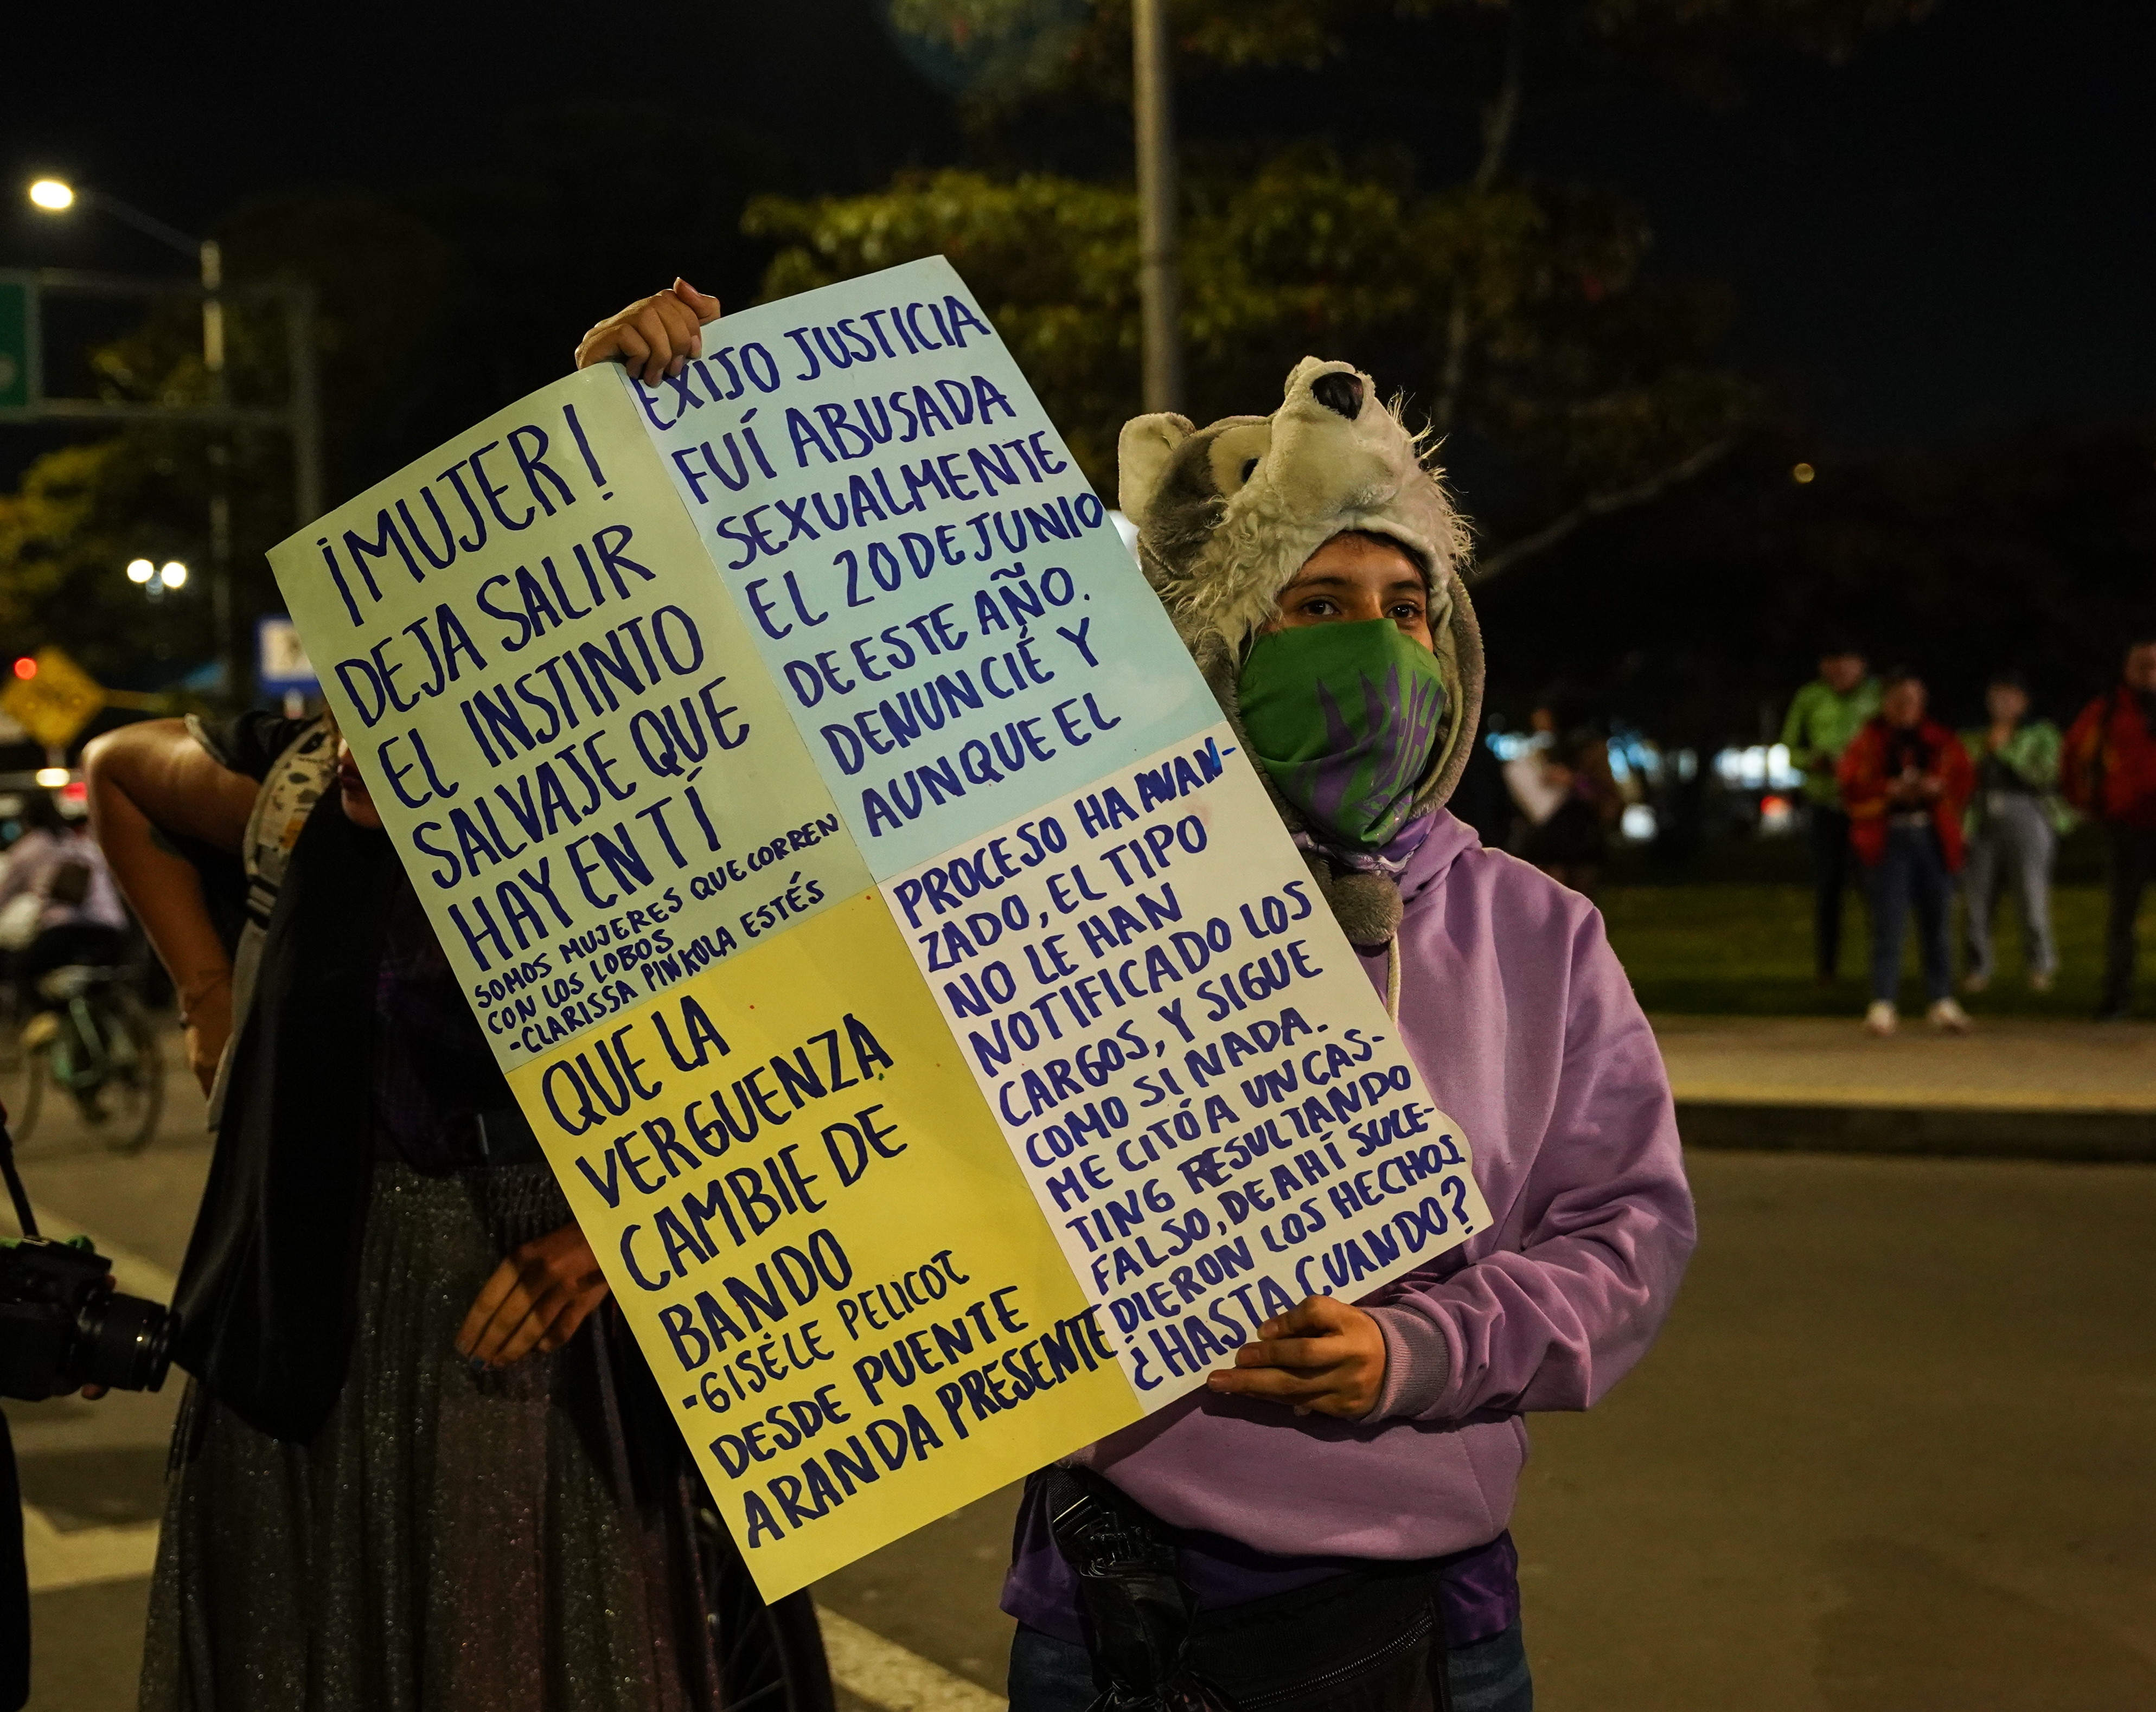 ¡MUJER!
DEJA SALIR
EL INSTINTO
SALVAJE QUE
HAY EN TÍ
SOMOS MUJERES QUE CORREN
CON LOS LOBOS
-CLARISSA PINKOLA ESTÉS
EXIJO JUSTICIA
FUÍ ABUSADA
SEXUALMENTE
EL 20 DE JUNIO
DE ESTE AÑO.
DENUNCIÉ Y
AUNQUE EL
PROCESO HA AVAN-
ZADO, EL TIPO
NO LE HAN
NOTIFICADO LOS
CARGOS, Y SIGUE
COMO SI NADA.
ME CITÓ A UN CAS-
TING RESULTANDO
FALSO, DE AHÍ SUCE-
DIERON LOS HECHOS.
¿HASTA CUANDO?
QUE LA
VERGUENZA
CAMBIE DE
BANDO
-GISÉLE PELICOT
DESDE PUENTE
ARANDA PRESENTE